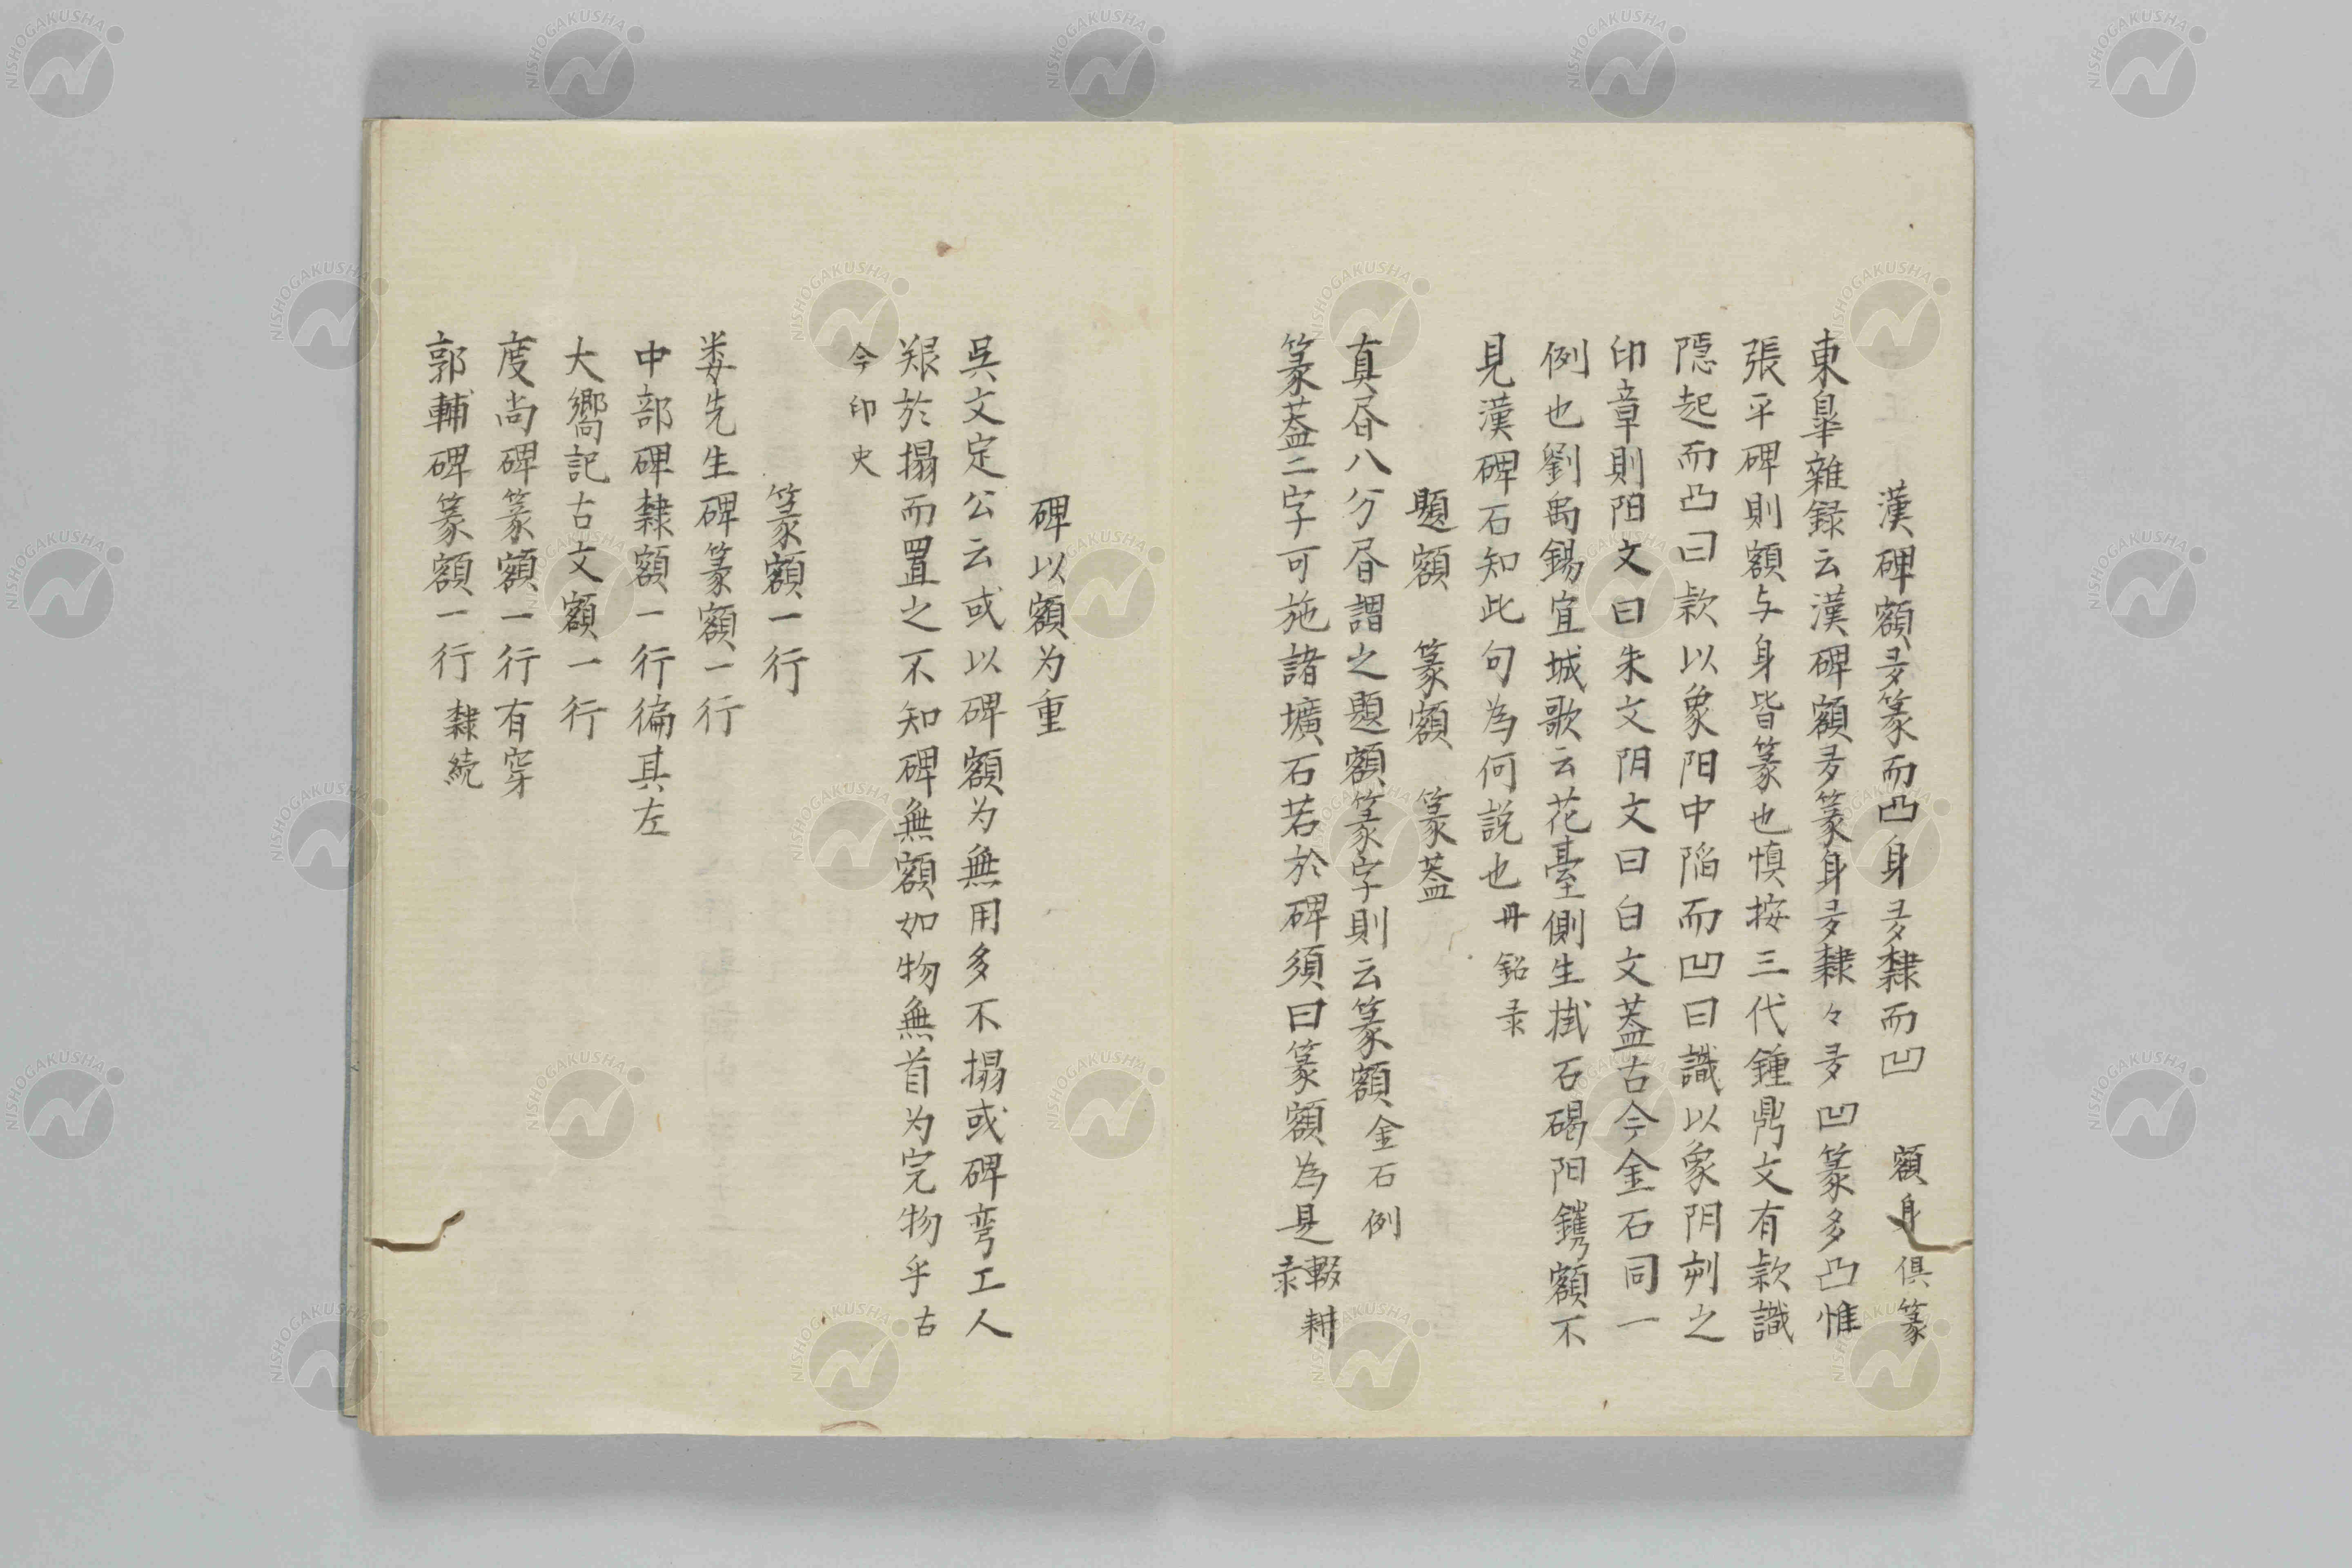 漢碑額多篆而凸身多隸而凹　額身俱篆
東皐雜録云漢碑額多篆身多隸々多凹篆多凸惟
張平碑則額与身皆篆也慎按三代鍾鼎文有款識
隠起而凸曰款以象阳中陥而凹曰識以象阴刻之
印章則阳文曰朱文阴文曰白文蓋古今金石同一
例也劉禹錫宜城歌云花臺側生掛石碣阳鐫額不
見漢碑石知此句為何説也丹鉛录
題額　篆額　篆蓋
真昼八分昼謂之題額篆字則云篆額金石例
篆蓋二字可施諸壙石若於碑須曰篆額為是輟耕录
碑以額为重
吳文定公云或以碑額为無用多不搨或碑弯工人
艱於搨而置之不知碑無額如物無首为完物乎古
今印史
篆額一行
娄先生碑篆額一行
中部碑隸額一行徧其左
大嚮記古文額一行
度尚碑篆額一行有穿
郭輔碑篆額一行隸続
NISHOGAKUSHA